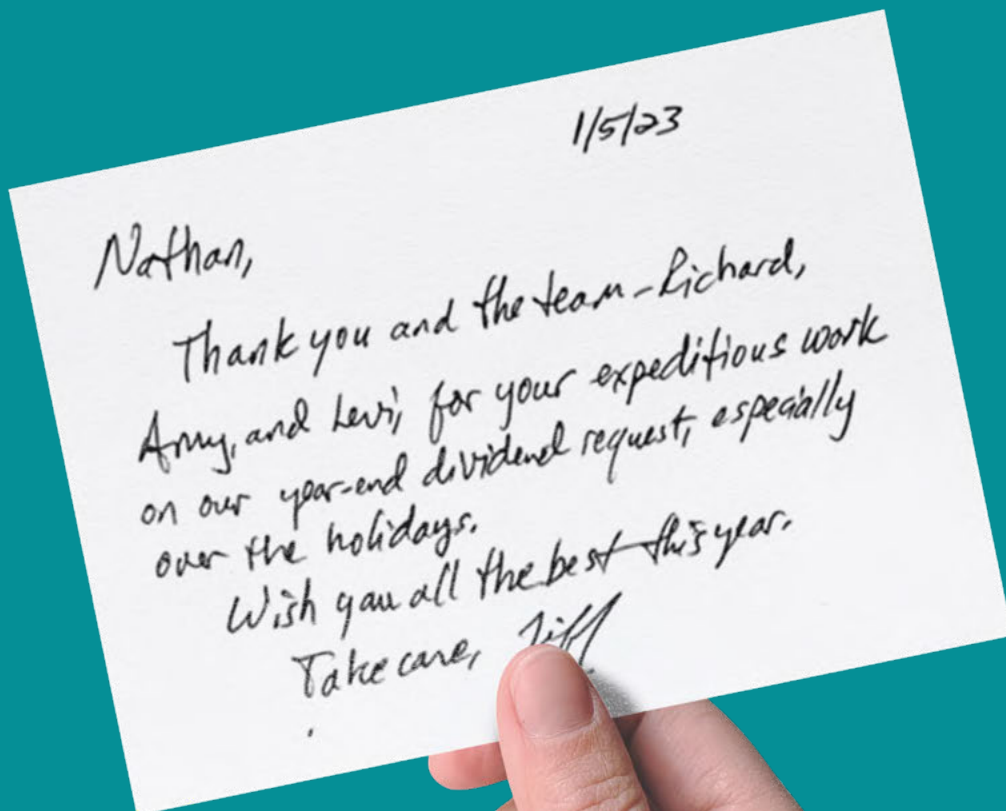 1/5/23
Nathan,
Thank you and the team - Richard,
Amy, and Levi, for your expeditious work
on our year-end dividend request, especially
over the holidays.
Wish you all the best this year.
Take care,